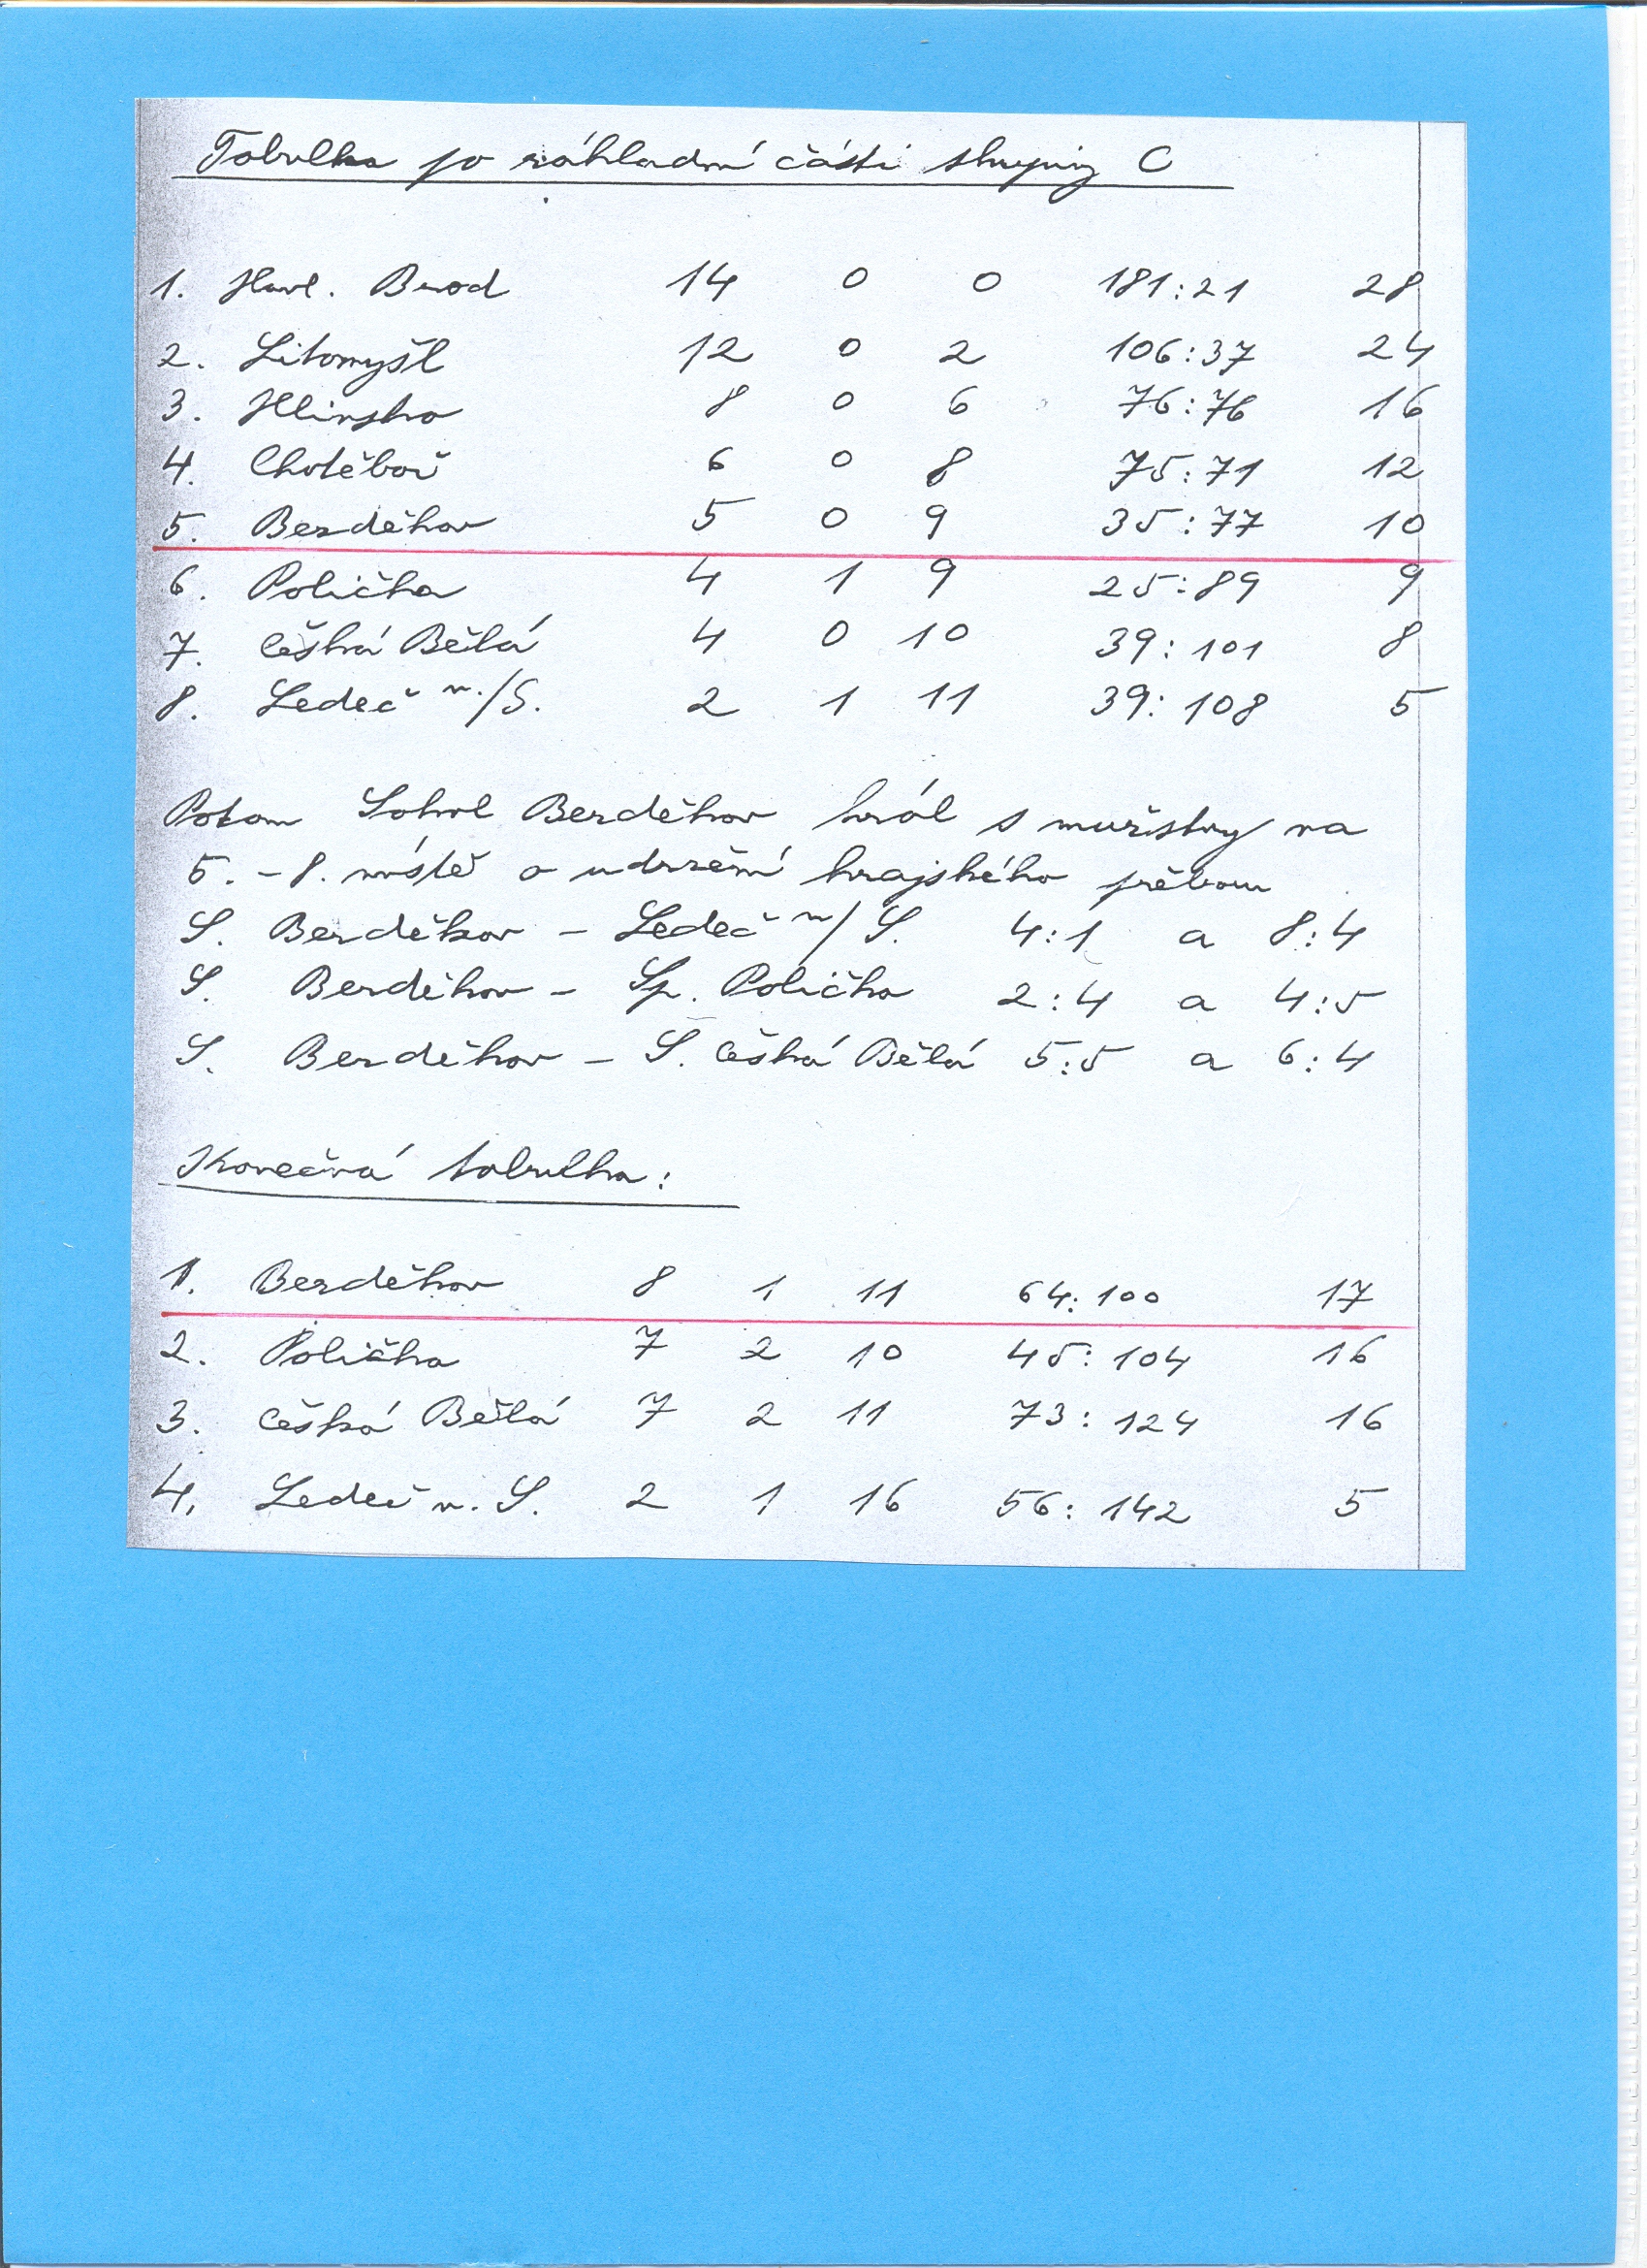 Tabulka po základní části skupiny C
1. Havl. Brod 14 0 0 181:21 28
2. Litomyšl 12 0 2 106:37 24
3. Hlinsko 8 0 6 76:76 16
4. Chotěboř 6 0 8 75:71 12
5. Bezděkov 5 0 9 35:77 10
6. Polička 4 1 9 25:89 9
7. Česká Bělá 4 0 10 39:101 8
8. Ledeč n./S. 2 1 11 39:108 5
Potom Sokol Bezděkov hrál s mužstvy na
5. - 8. místě o udržení krajského přeboru
S. Bezděkov - Ledeč n/S. 4:1 a 8:4
S. Bezděkov - Sp. Polička 2:4 a 4:5
S. Bezděkov - S. Česká Bělá 5:5 a 6:4
Konečná tabulka:
1. Bezděkov 8 1 11 64:100 17
2. Polička 7 2 10 45:104 16
3. Česká Bělá 7 2 11 73:124 16
4. Ledeč n. S. 2 1 16 56:142 5